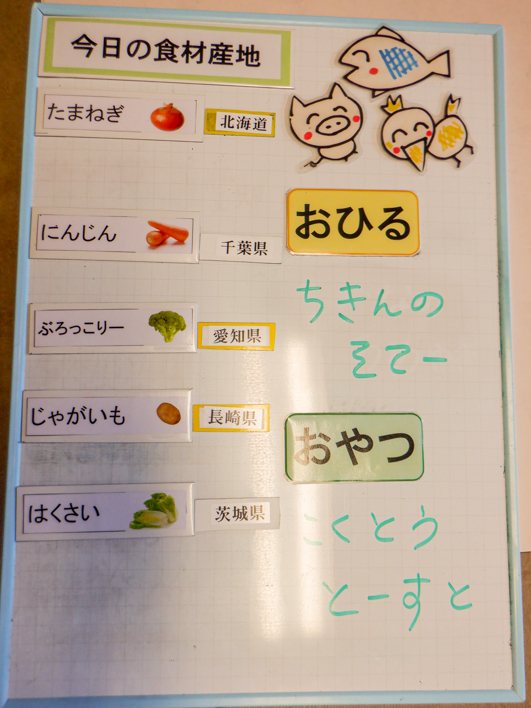 今日の食材産地
たまねぎ 北海道
にんじん 千葉県
ぶろっこりー 愛知県
じゃがいも 長崎県
はくさい 茨城県
おひる
ちきんの
そてー
おやつ
こくとう
とーすと